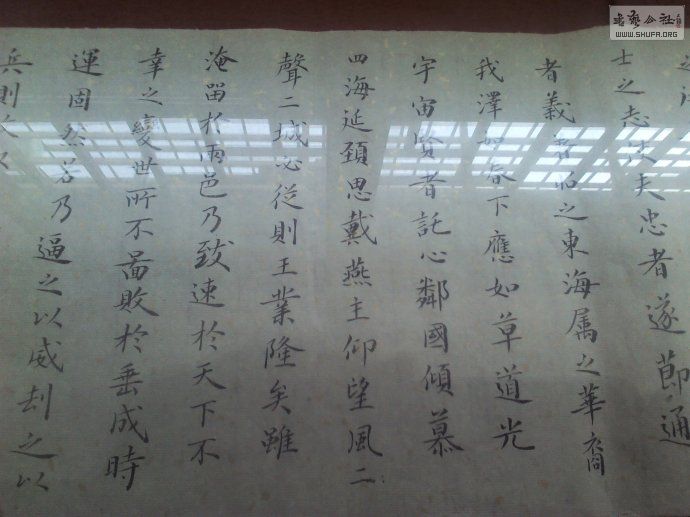 士之志使夫忠者遂節通
者義著昭之東海属之華裔
我澤如春下應如草道光
宇宙賢者託心鄰國傾慕
四海延頸思戴燕主仰望風二
聲二城必從則王業隆矣雖
淹留於兩邑乃致速於天下不
幸之變世所不啚敗於垂成時
運固然若乃逼之以威刧之以
兵則
WWW.SHUFA.ORG